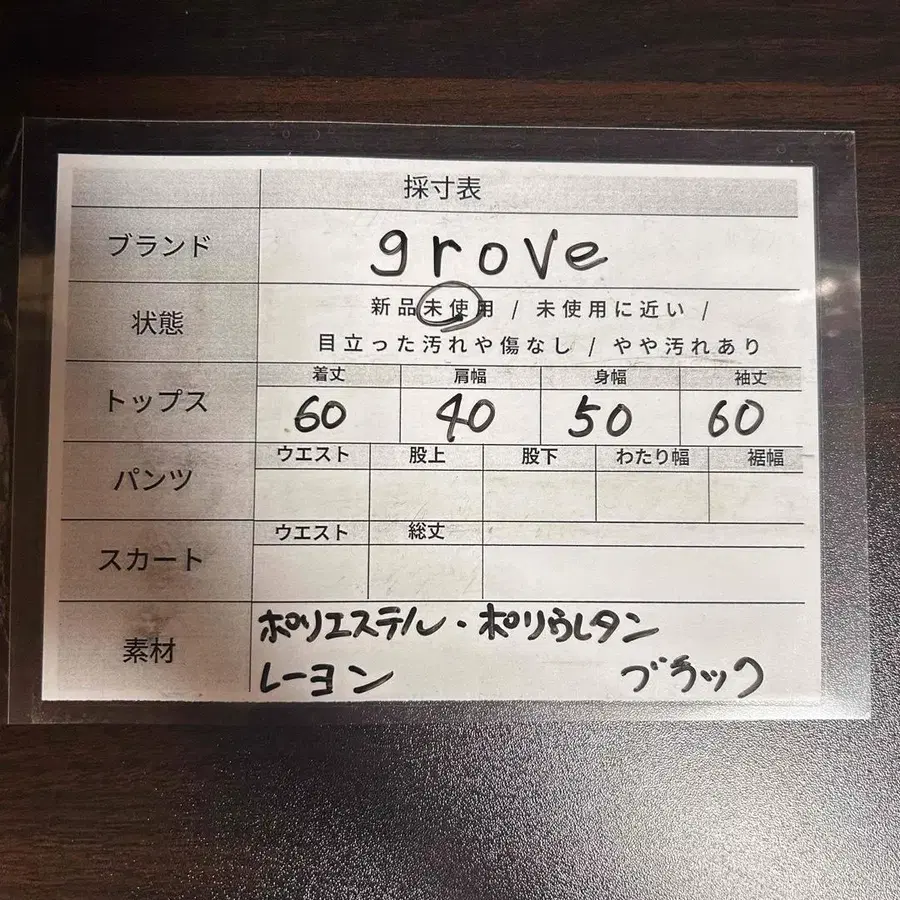 採寸表
ブランド grove
状態 新品未使用 / 未使用に近い /
目立った汚れや傷なし / やや汚れあり
トップス 着丈 肩幅 身幅 袖丈
60 40 50 60
パンツ ウエスト 股上 股下 わたり幅 裾幅
スカート ウエスト 総丈
素材 ポリエステル・ポリウレタン
レーヨン ブラック